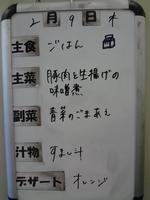 2月9日木
主食 ごはん
主菜 豚肉と生揚げの
味噌煮
副菜 青菜のごまあえ
汁物 すまし汁
デザート オレンジ